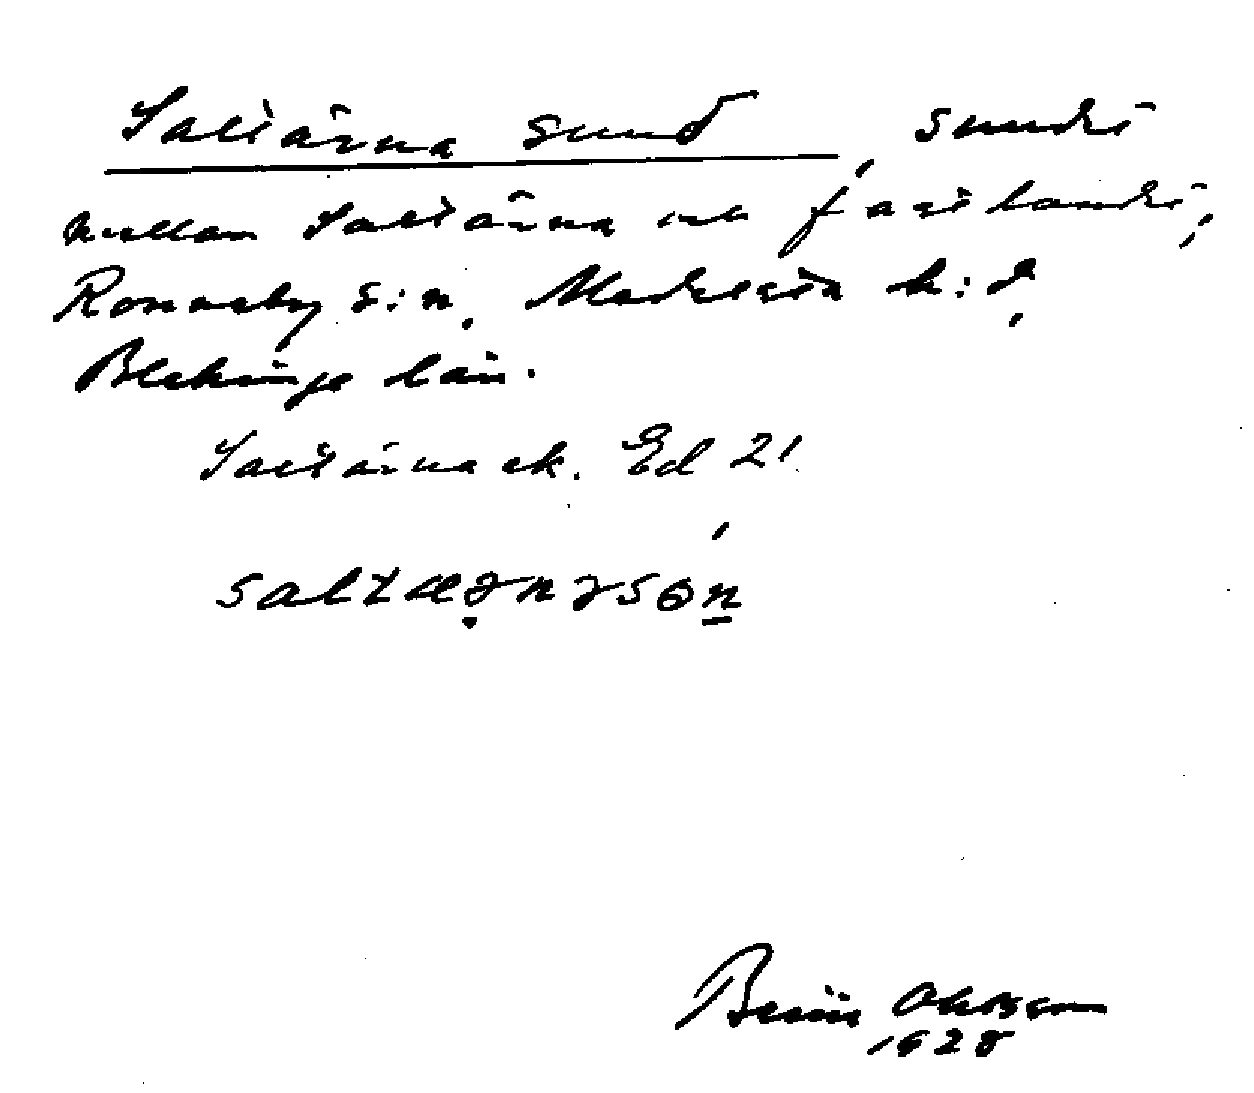 Saltärna sund, sundet
mellan Saltärna och fastlandet,
Ronneby s:n, Medelsta h:d,
Blekinge län.
Saltärna ek. Ed 21
Bertil Ohlsson
1928